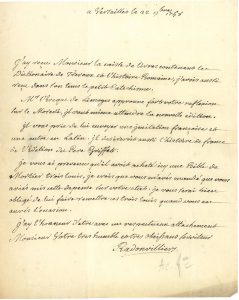 a Versailles le 22
J'ay reçu Monsieur la caisse de livres contenant les
Dictionaire de Trevoux et l'histoire Romaine, j'avois aussi
reçu dans son tems le petit Catechisme.
Mr. l'Eveque de Limoges approuve fort votre reflexion
sur le Moreri, et vous mieux attendre la nouvelle edition.
Je vous prie de lui envoyer une quintilien françoise et
une autre en Latin. il desireroit aussi l'histoire de france
de l'Edition du Pere Griffet.
Je vous ai prevenu qu'il avoit acheté icy une Bible de
Mortier trois louis, je crois que vous m'aviez mandé que vous
aviez mis cette depense sur votre etat. Je vous serai bien
obligé de lui faire remettre ces trois louis quand vous en
aurez l'occasion.
J'ay l'honneur d'etre avec un respectueux attachement
Monsieur Votre tres humble et tres obeissant serviteur
Radonvilliers